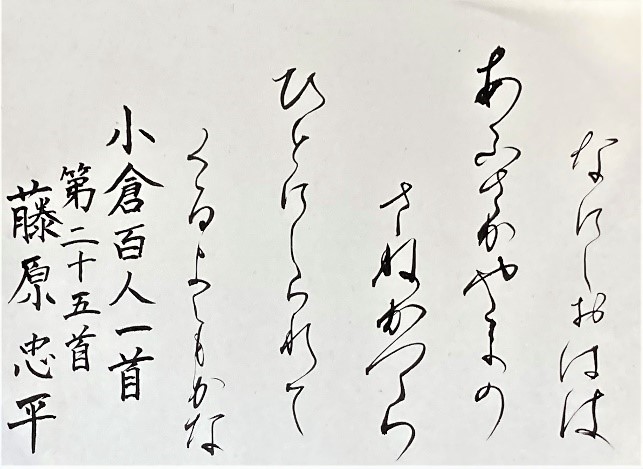 なにしおはは
あふさかやまの
さねかつら
ひとにしられて
くるよしもかな
小倉百人一首
第二十五首
藤原忠平